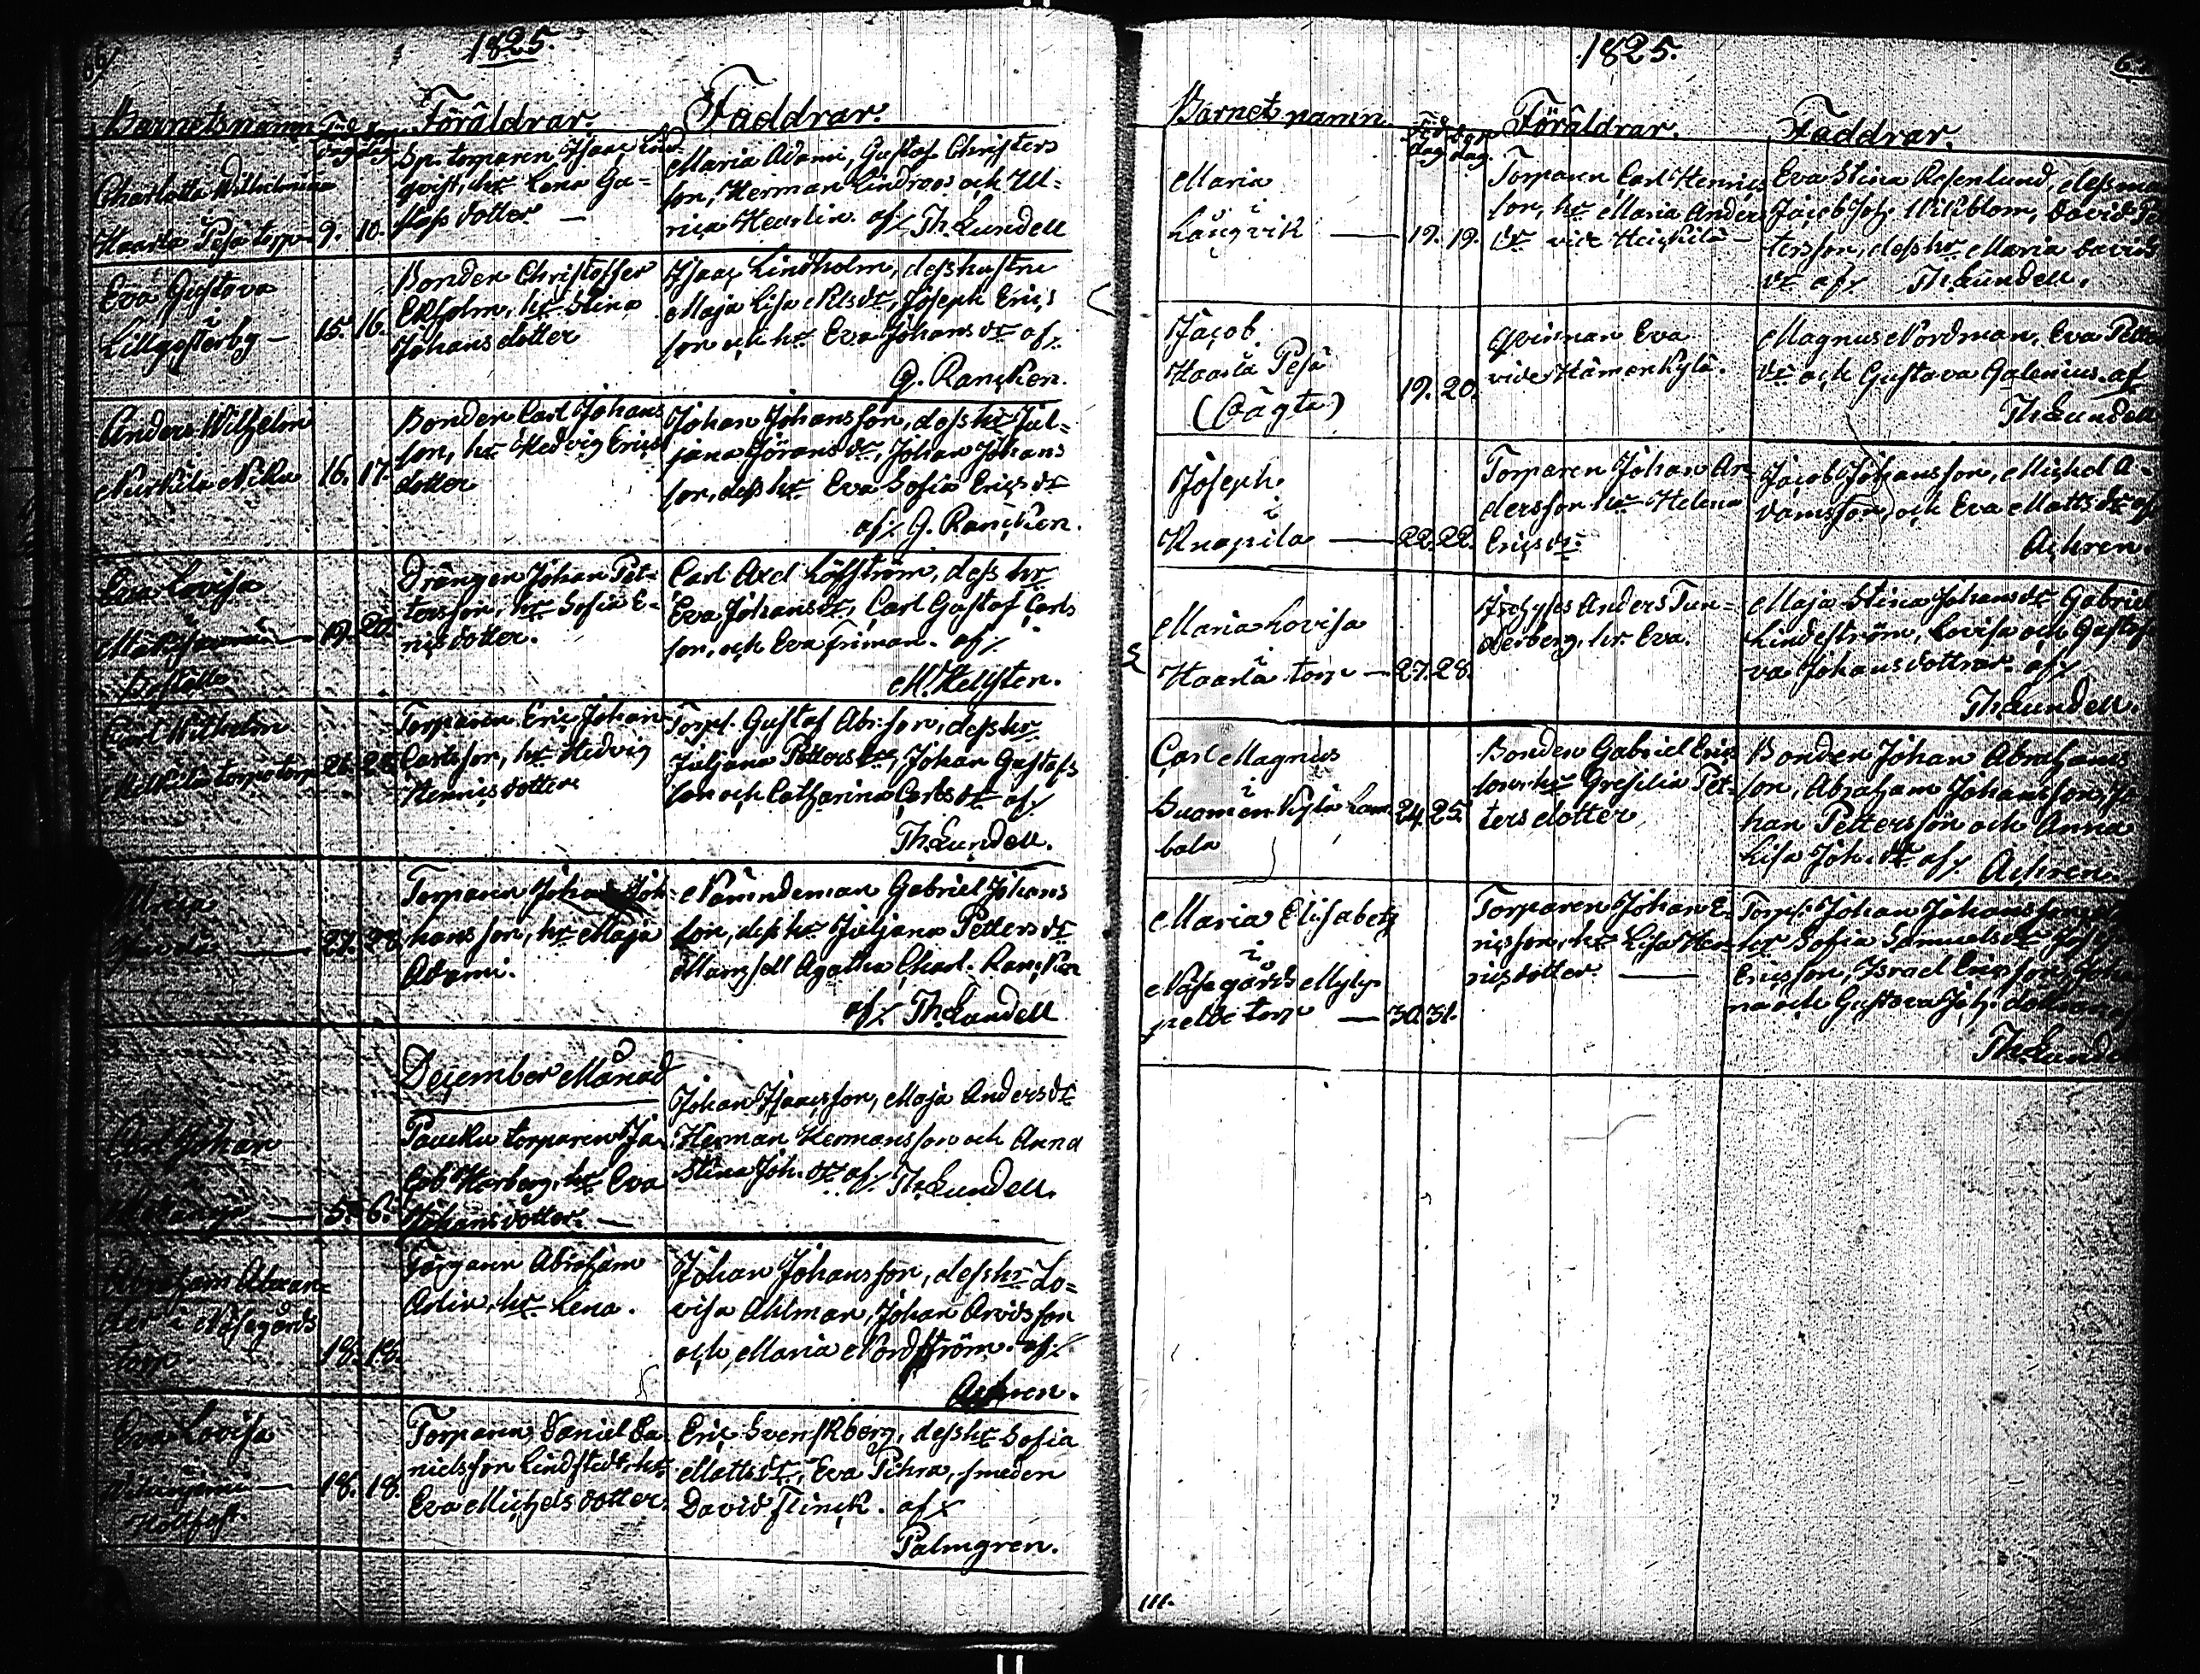 1825.
Barnets namn Föd. dag Döp. dag Föräldrar. Faddrar.
Charlotta Wilhelmina
Haarla Pesä torp 9. 10.
Sp. torparen Isaac Lind
qvist, hr Lena Gu=
stafs dotter —
Maria Adami, Gustaf Christers
son, Herman Lindroos och Ul=
rica Hedlin. af/. Th. Lundell
Eva Gustava
i
Lillgesterby — 15. 16.
Bonden Christoffer
Ekholm, hr Stina
Johansdotter
Isaac Lindholm, dess hustru
Maja Lisa Nilsdr, Joseph Erics
son och hr Eva Johansdr af/.
G. Rancken.
Anders Wilhelm
Nurkila Niku 16. 17.
Bonden Carl Johans
son, hr Hedvig Erics
dotter
Johan Johansson, dess hr Jul=
jana Göransdr, Johan Johans
son, dess hr Eva Sofia Ericsdr
af/. G. Rancken.
Lovisa
19. 20.
Drängen Johan Pet=
tersson, hr Sofia E=
ricsdotter.
Carl Axel Löfström, dess hr
Eva Johansdr, Carl Gustaf Carls
son, och Eva Friman. af/.
M. Hellsten.
Carl Wilhelm
Torparen Eric Johan
Carlsson, hr Hedvig
Henricsdotter
Torpf. Gustaf Abr. son, dess hr
Juljana Pettersdr, Johan Gustafs
son och Catharina Carlsdr af/
Th. Lundell.
27. 28.
Torparen Johan Joh=
hansson, hr Maja
Adami.
Nämndeman Gabriel Johans
son, dess hr Juljana Pettersdr
Mamsell Agatha Charl. Rancken
af/. Th. Lundell
December Månad
Johan
5. 6.
Paucku torparen Ja=
cob Harberg, hr Eva
Johansdotter. —
Johan Isaacsson, Maja Andersdr
Herman Hermansson och Anna
Stina Joh. dr af/. Th. Lundell.
Abraham Alexan=
der i Näsegårds
torp 18. 18.
Torparen Abraham
Aolin, hr Lena.
Johan Johansson, dess hr Lo=
visa Ahlman, Johan Arvidsson
och Maria Nordström. af/.
Achren.
Eva Lovisa
18. 18.
Torparen Daniel Da=
nielsson Lindstedt, hr
Eva Michelsdotter.
Eric Svenskberg, dess hr Sofia
Mattsdr, Eva Pihra, smeden
David Flinck. af/.
Palmgren.
1825.
Barnets namn. Föd dag Döp dag. Föräldrar. Faddrar.
Maria
i
Långvik — 19. 19.
Torparen Carl Henrics
son, hr Maria Anders
dr vid Heickilä —
Eva Stina Rosenlund, dess man
Jacob Joh. Wikblom, David Pet
tersson, dess hr Maria Davids
dr af/. Th. Lundell.
Jacob
Haarla Pesä
(Oägta) 19. 20.
Qvinnan Eva
vid Hämenkylä.
Magnus Nordman, Eva Petters
dr och Gustava Galenius. af
Th. Lundell
Joseph.
i
Knapila — 22. 22.
Torparen Johan An=
dersson hr Helena
Ericsdr
Jacob Johansson, Michel A=
damsson, och Eva Mattsdr af
Achren.
Maria Lovisa
i
Haarla torp — 27. 28.
Inhyses Anders Tun=
derberg, hr Eva.
Maja Stina Johansdr Gabriel
Lindeström, Lovisa och Gusta
va Johansdottrar. af/.
Th. Lundell.
Carl Magnus
i
Suomenkylä Lam
bala 24. 25.
Bonden Gabriel Erics
son, hr Gresilia Pet=
tersdotter
Bonden Johan Abrahams
son, Abraham Johansson, Jo
han Pettersson och Anna
Lisa Joh. dr af/. Achren.
Maria Elisabeth
i
Näsegårds Myly
peldo torp — 30. 31.
Torparen Johan E=
ricsson, hr Lisa Hen=
ricsdotter. —
Torpf. Johan Johansson
hr Sofia Samuelsdr
Ericsson, Israel Ericsson, Joha
na och Gustava Joh. dottrar
Th. Lundell
111.